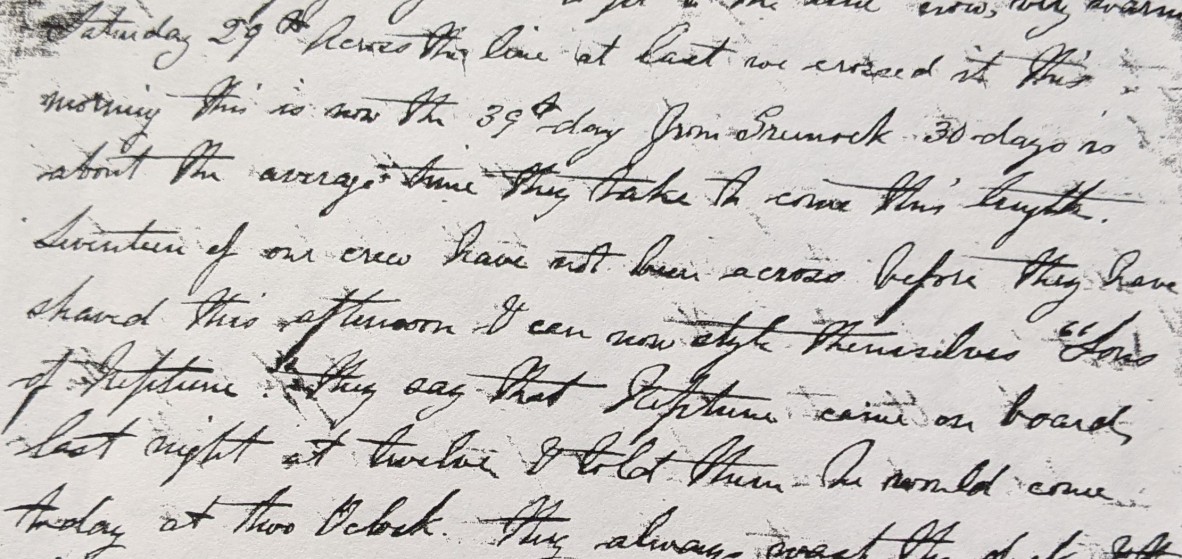 to get in the same now, very warm
Saturday 29th Across the line at last we crossed it this
morning this is now the 39th day from Greenock 30 days is
about the average time they take to come this length.
Seventeen of our crew have not been across before they have
shaved this afternoon & can now style themselves "Sons
of Neptune". They say that Neptune came on board
last night at twelve & told them he would come
today at two Oclock. They always wash the